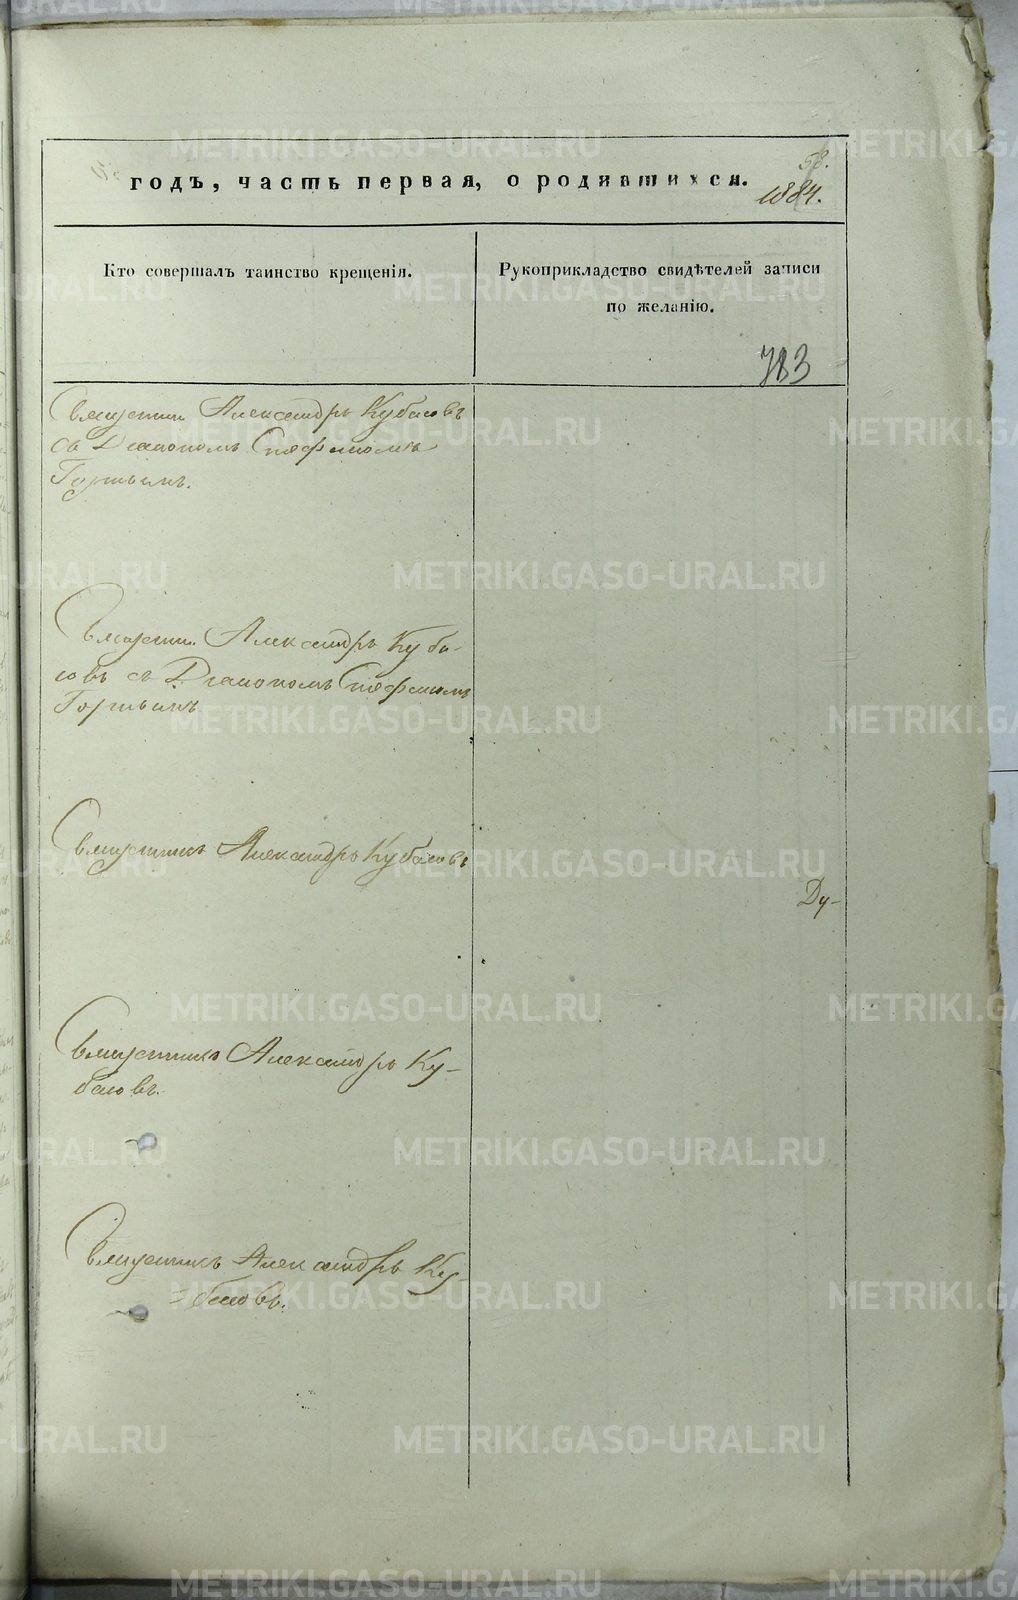 58.
годъ, часть первая, о родившихся.
1884.
Кто совершалъ таинство крещенія.
Рукоприкладство свидѣтелей записи
по желанію.
783
Священникъ Александръ Кубасовъ
съ Діакономъ Стефаномъ
Священникъ Александръ Куба-
совъ съ Діакономъ Стефаномъ
Священникъ Александръ Кубасовъ
Ду-
Священникъ Александръ Ку-
басовъ.
Священникъ Александръ Ку-
басовъ.
METRIKI.GASO-URAL.RU